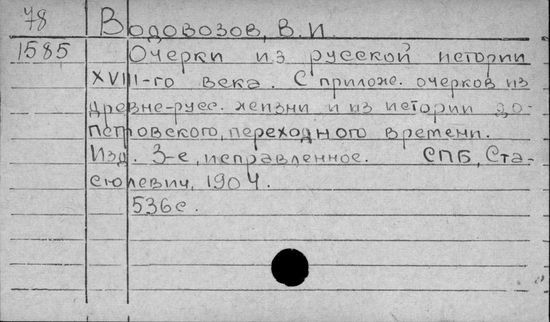 78 Водовозов, В. И.
1585 Очерки из русской истории
XVIII-го века. С приложе. очерков из
древне-русс. жизни и из истории до-
Петровского, переходного времени.
Изд. 3-е, исправленное. СПБ, Ста-
сюлевич, 1904.
536с.